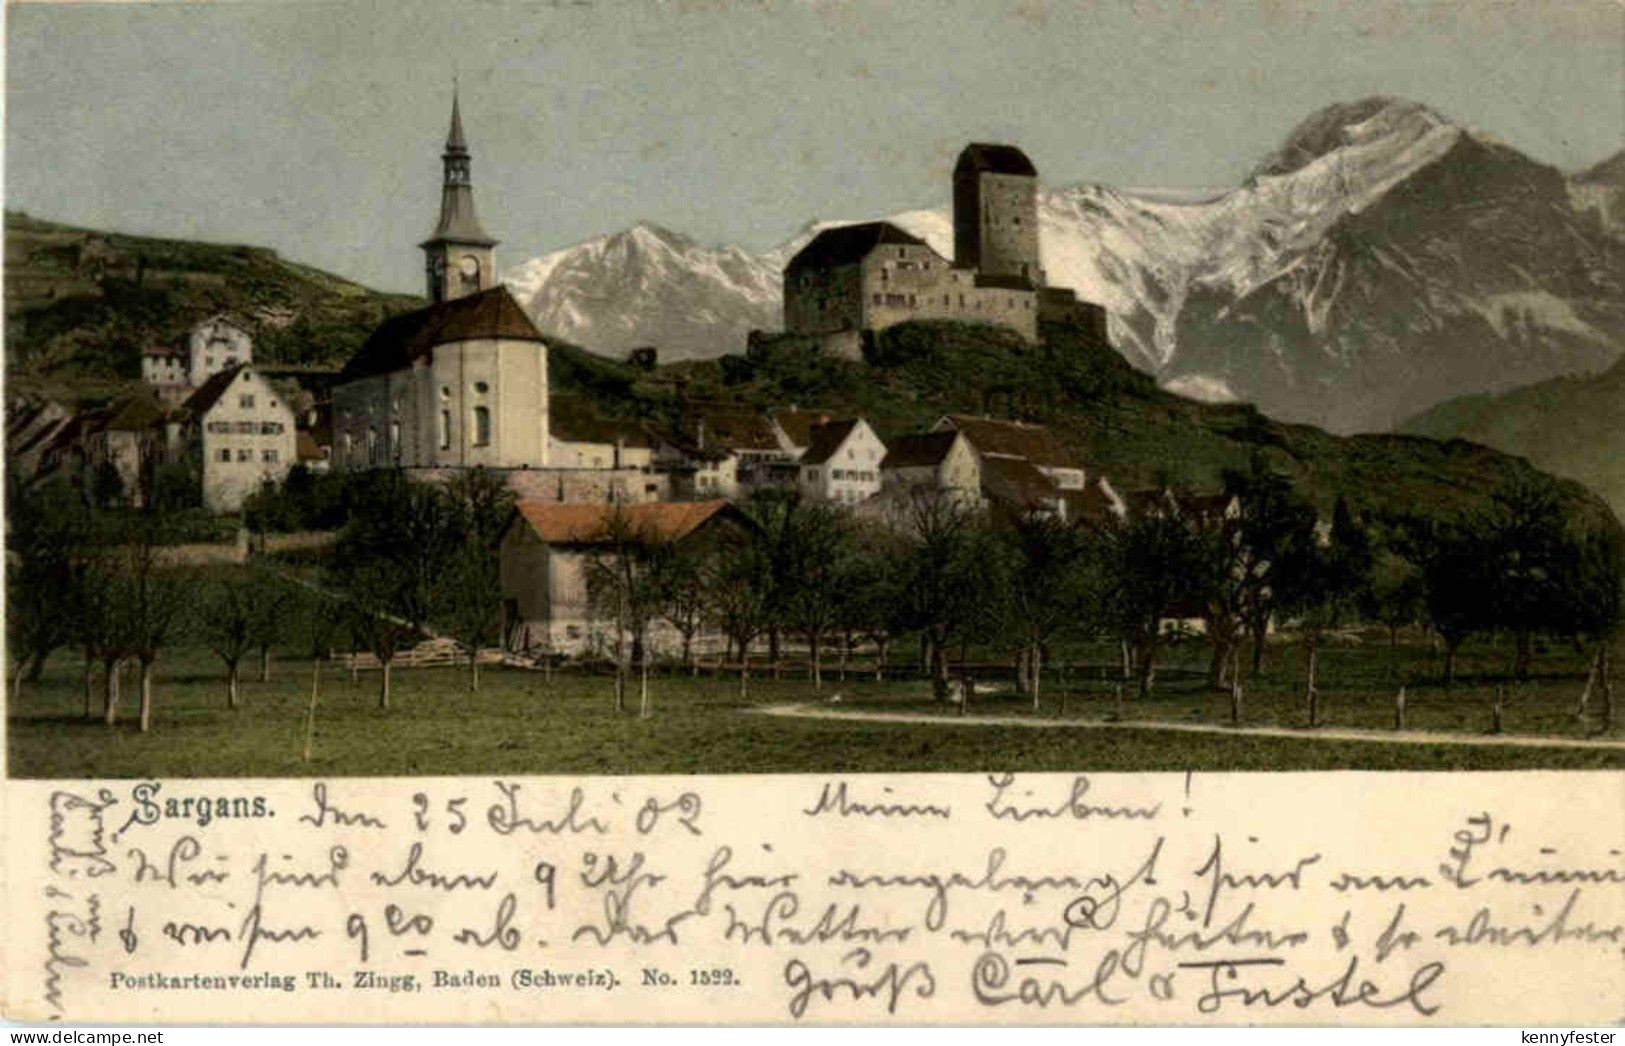 Sargans. den 25 Juli 02 Meine Lieben!
Wir sind eben 9 Uhr hier angelangt, sind am
& reisen 9 ab. das Wetter wird heiter & so weiter,
Gruß Carl &
Gruß an
Postkartenverlag Th. Zingg, Baden (Schweiz). No. 1522.
delcampe.net
kennyfester